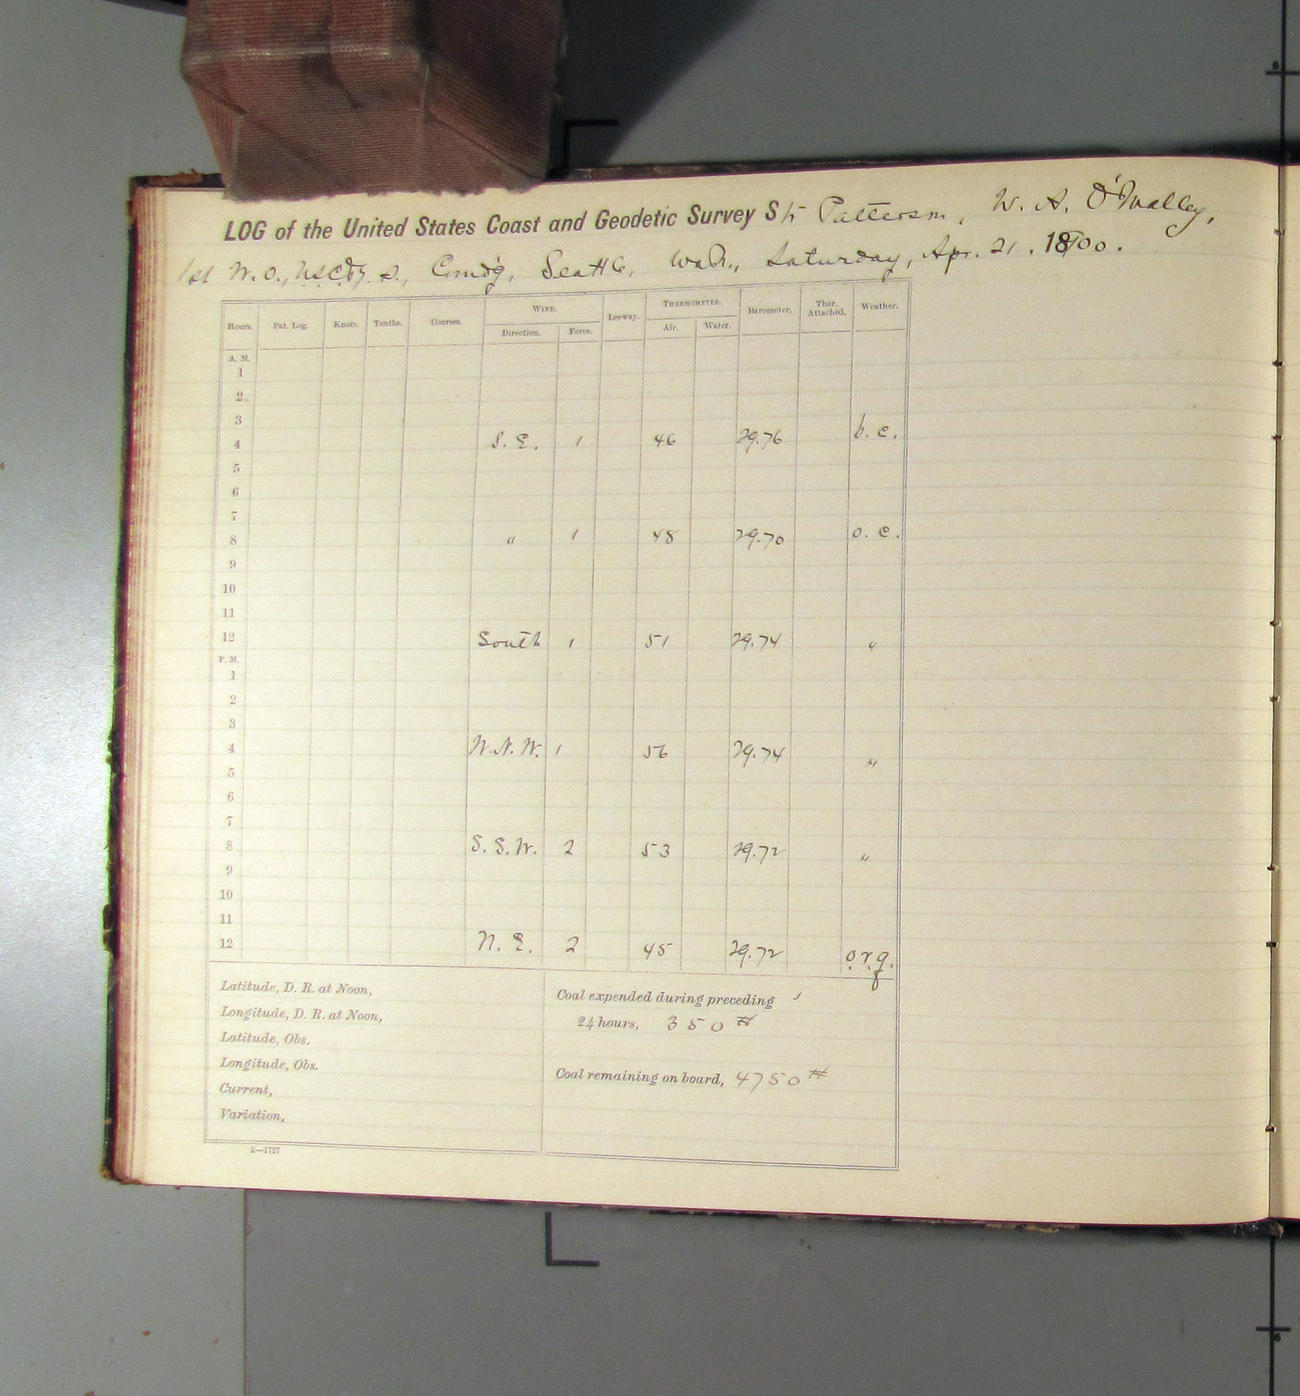 LOG of the United States Coast and Geodetic Survey Str Patterson, W. A. O'Malley,
1st W. O., U.S.C. & G. S., Comd'g, Seattle, Wash., Saturday, Apr. 21, 1900.
Hours. Pat. Log. Knots. Tenths. Courses. WIND. Leeway. THERMOMETER. Barometer. Ther. Attached. Weather.
Direction. Force. Air. Water.
A. M.
1
2
3
4 S. E. 1 46 29.76 b. c.
5
6
7
8 " 1 48 29.70 o. c.
9
10
11
12 South 1 51 29.74 "
P. M.
1
2
3
4 W.N.W. 1 56 29.74 "
5
6
7
8 S. S. W. 2 53 29.72 "
9
10
11
12 N. E. 2 45 29.72 o.r.q.
Latitude, D. R. at Noon,
Longitude, D. R. at Noon,
Latitude, Obs.
Longitude, Obs.
Current,
Variation,
Coal expended during preceding
24 hours, 350 #
Coal remaining on board, 4750 #
2—1727